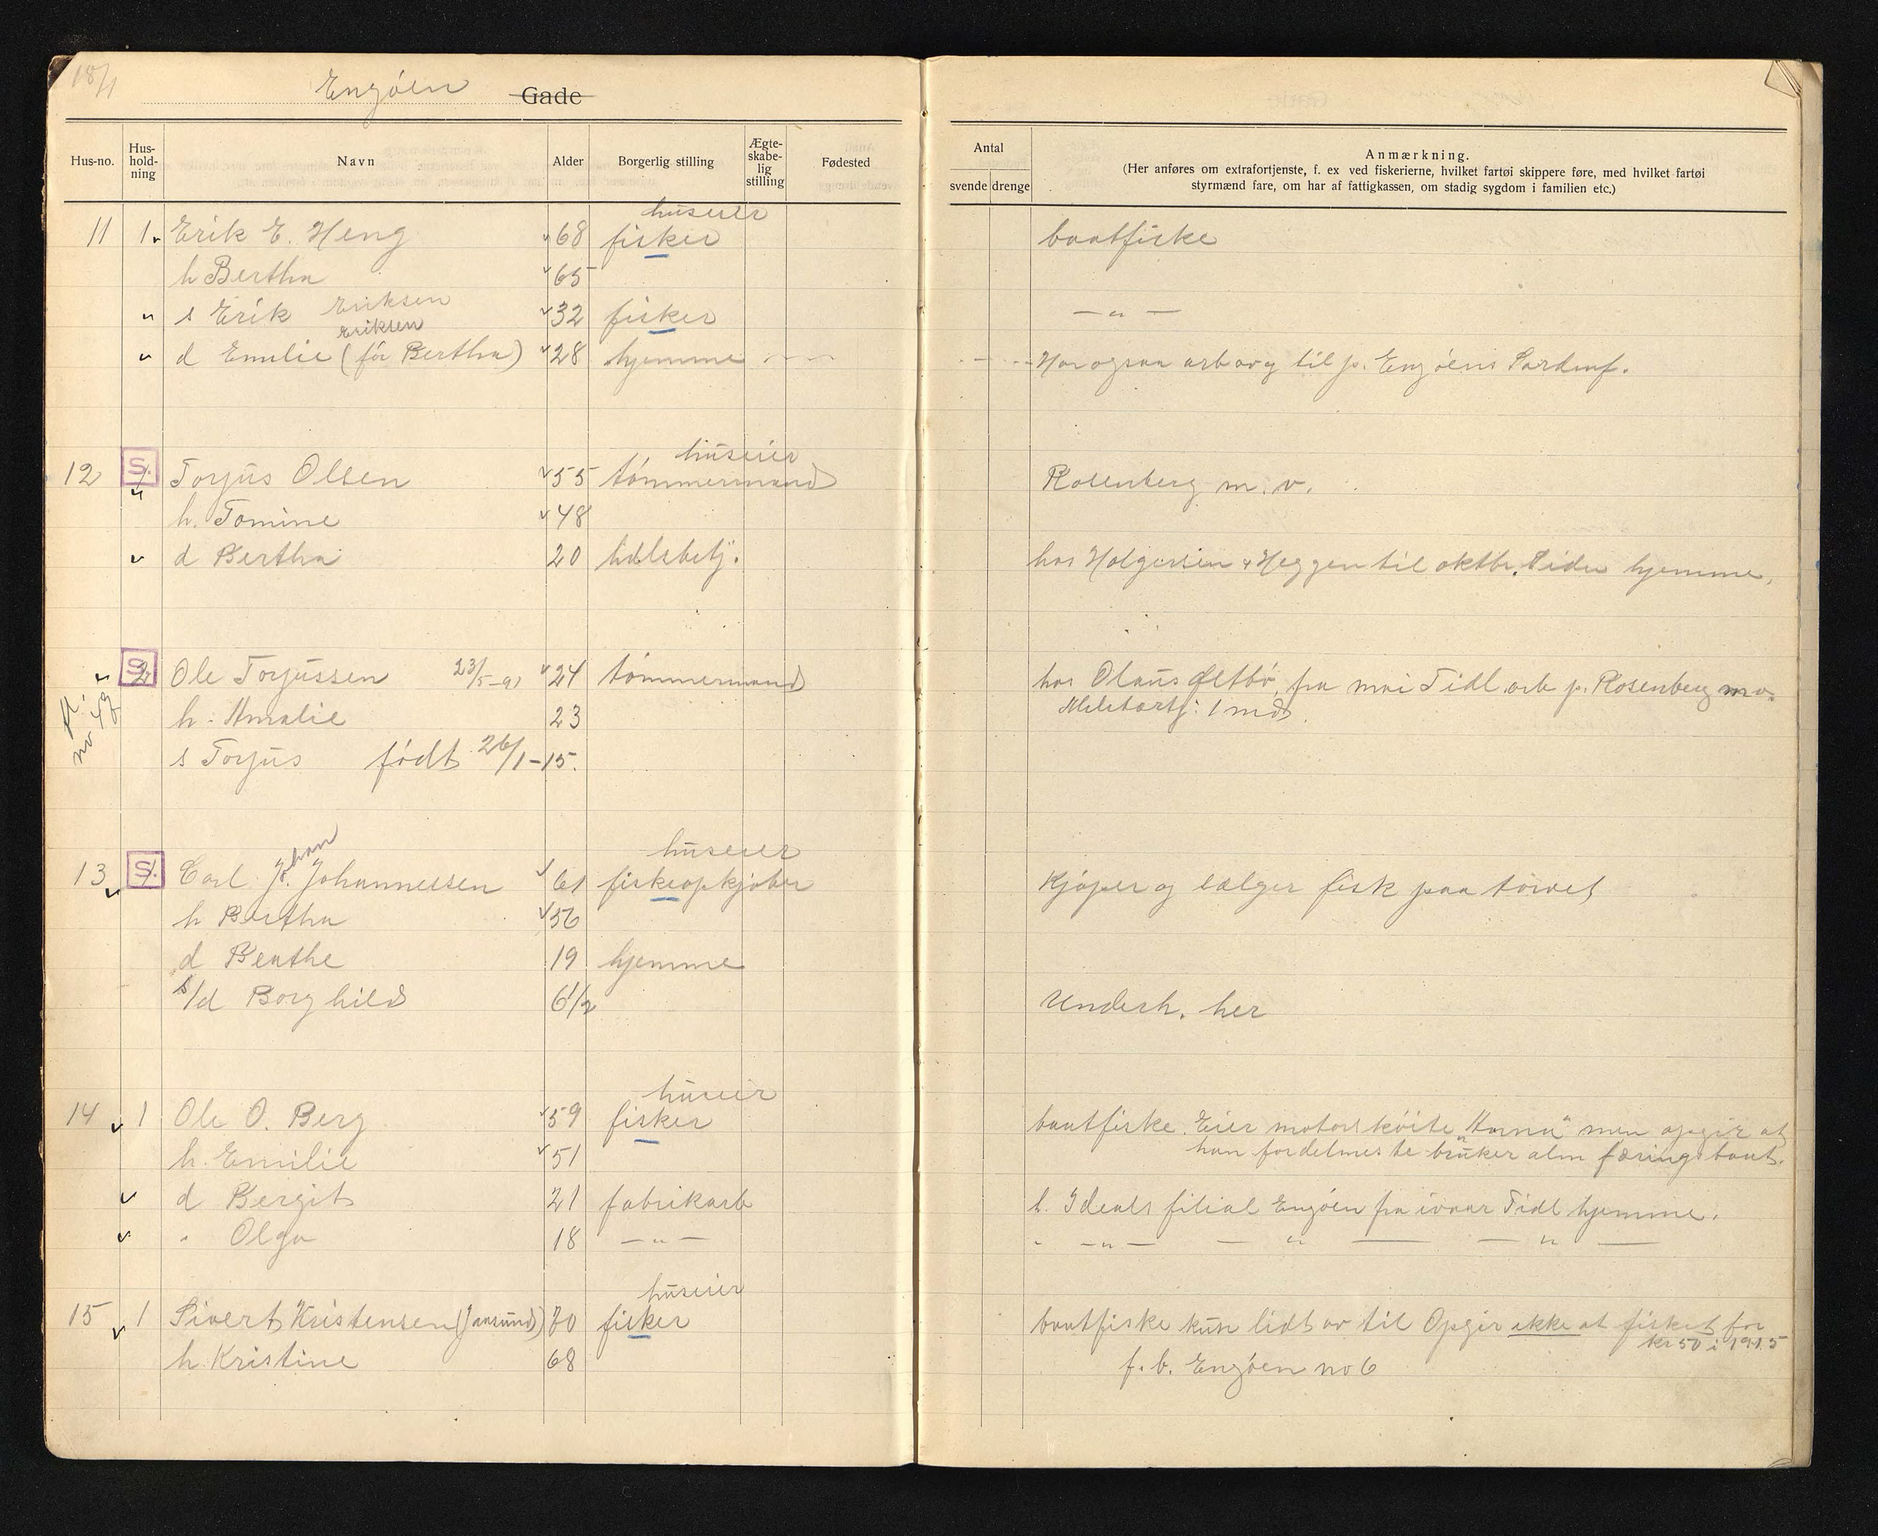 18/1
Engøen Gade
Hus-no. Hus-hold-ning Navn Alder Borgerlig stilling Ægte-skabe-lig stilling Fødested Antal svende drenge Anmærkning.
(Her anføres om extrafortjeneste, f. ex ved fiskerierne, hvilket fartøi skippere føre, med hvilket fartøi
styrmænd fare, om har af fattigkassen, om stadig sygdom i familien etc.)
huseier
11 1 Erik E. Heng 68 fisker baatfiske
h Bertha 65
s Erik Eriksen 32 fisker — " —
Eriksen
d Emilie (før Bertha) 28 hjemme Har ogsaa arb av g til p. Engøens Sardinf.
huseier
12 S. 1. Torjus Olsen 55 tømmermand Rosenberg m. v.
h. Tomine 48
d Bertha 20 hdlsbetj. hos Holgersen & Heggen til oktbr. Siden hjemme.
S. 2 Ole Torjussen 23/5-91 24 tømmermand hos Olaus fra mai Tidl. arb p. Rosenberg m v.
fl. no 49
h. Amalie 23 Militærtj: 1 md.
s Torjus født 26/1-15.
huseier
13 S. 1. Carl Joh. Johannessen 61 fiskeopkjøber Kjøper og sælger fisk paa torvet
han
h Bertha 56
d Benthe 19 hjemme
s/d Borghild 6 1/2 Undersh. her
huseier
14 1 Ole O. Berg 59 fisker baatfiske. Eier motorskøite "Anna" men opgir at
h. Emilie 51 han fordetmeste bruker alm færingsbaat.
d Bergit 21 fabrikarb b. Ideals filial Engøen fra ivaar Tidl hjemme.
" Olga 18 — " — " — " — — " — — " —
huseier
15 1 Sivert Kristensen (Jansund) 70 fisker baatfiske kun lidt av til Opgir ikke at fisket for
kr 50 i 1915
h. Kristine 68 f. b. Engøen no 6